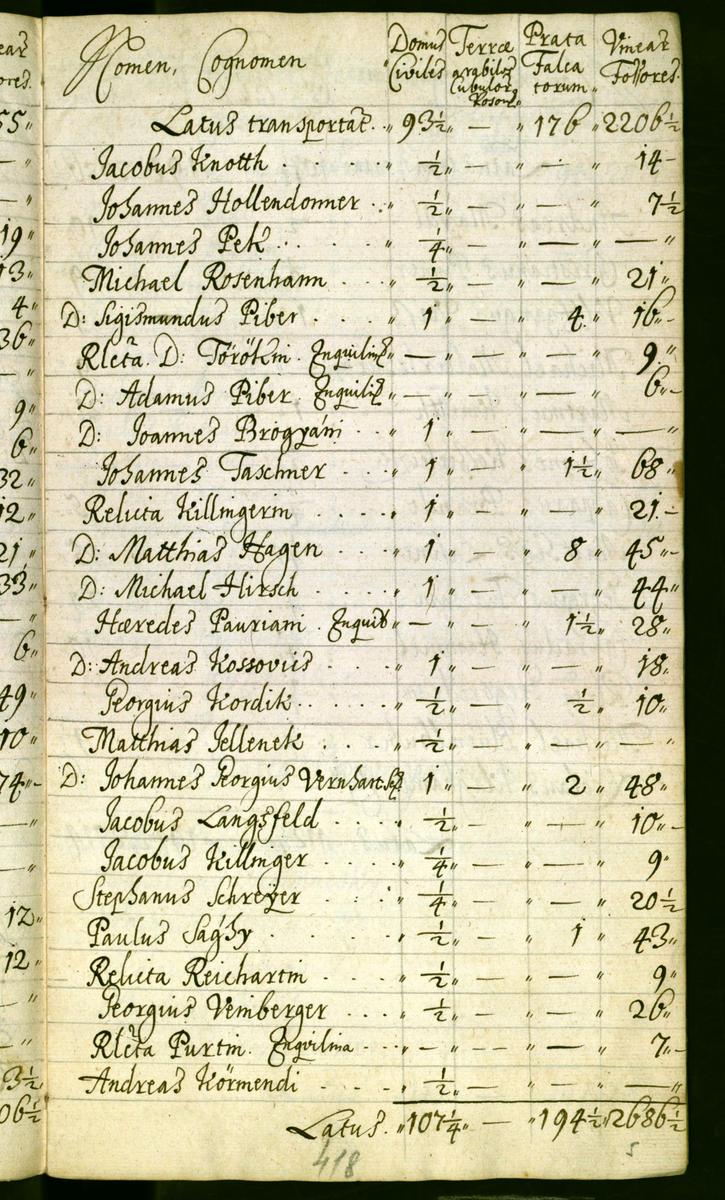 Nomen, Cognomen Domus Civiles Terræ arabiles Cubulor. Poson. Prata Falca torum Vinear Fossores.
Latus transportat. 93½ — 176 2206½
Jacobus Knotth ½ — — 14
Johannes Hollendonner ½ — — 7½
Johannes Pek ¼ — — —
Michael Rosenhann ½ — — 21
D: Sigismundus Piber 1 — 4 16
Rleta. D: Törökin Inquilina — — — 9
D: Adamus Piber Inquili — — — 6
D: Joannes Brogyáni 1 — — —
Johannes Taschner 1 — 1½ 68
Relicta Killingerin 1 — — 21
D: Matthias Hagen 1 — 8 45
D: Michael Hirsch 1 — — 44
Hæredes Pauriani Inquil — — 1½ 28
D: Andreas Kossoviis 1 — — 18
Georgius Kordik ½ — ½ 10
Matthias Jellenek ½ — — —
D: Johannes Georgius 1 — 2 48
Jacobus Langsfeld ½ — — 10
Jacobus Killinger ¼ — — 9
Stephanus Schreÿer ¼ — — 20½
Paulus Sághy ½ — 1 43
Relicta Reichartin ½ — — 9
Georgius Vemberger ½ — — 26
Rleta Purtin. Inqvilina — — — 7
Andreas Körmendi ½ — — —
Latus. 107¼ — 194½ 2686½
418
5
55
—
—
19
13
4
36
—
9
6
32
12
21
33
—
6
49
10
74
—
—
12
12
—
3½
06½